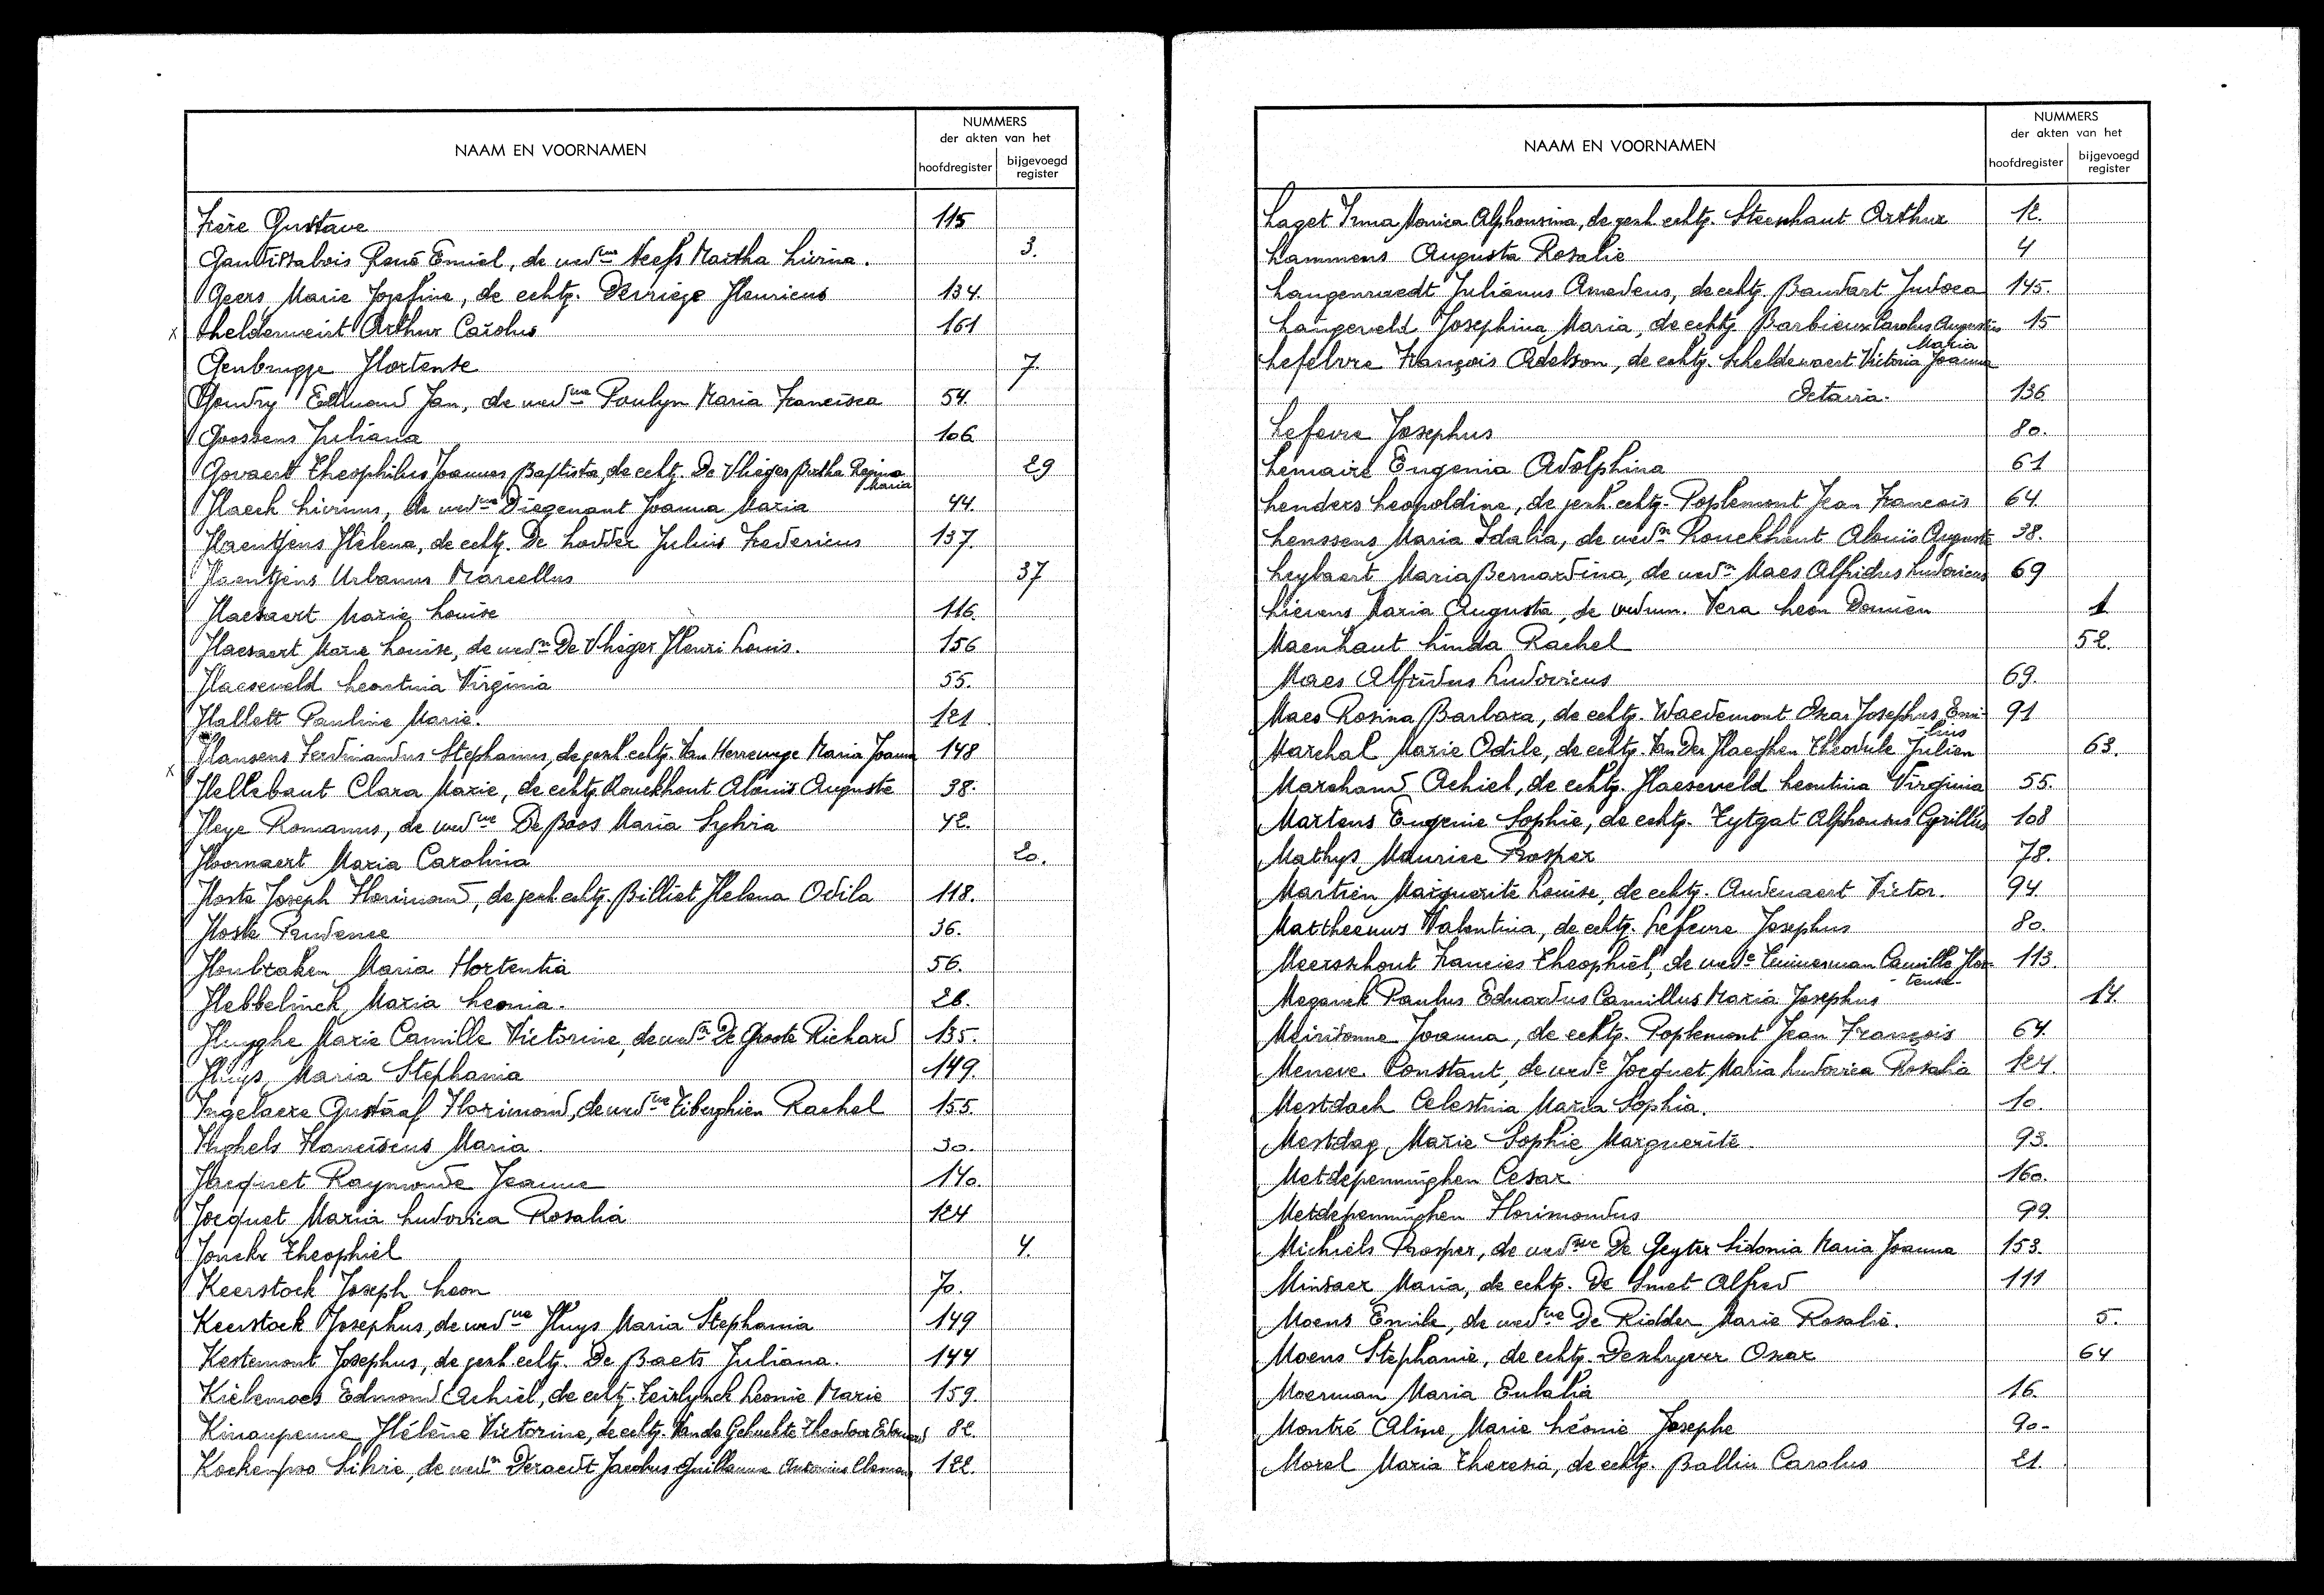 NAAM EN VOORNAMEN
NUMMERS
der akten van het
hoofdregister
bijgevoegd register
Frère Gustave 115
René Emiel, de wedwe Neefs Martha Livina. 3.
Geers Marie Josefine, de echtg. Derriege Henricus 134
x Gheldemeirt Arthur Carolus 161
Genbrugge Hortense 7.
Goudry Edmond Jan, de wedwe Poulyn Maria Francisca 54.
Goossens Juliana 106
Govaert Theophilus Joannes Baptista, de echtg. De Vlieger Bertha Regina Maria 29
Haeck Livinus, de wedwe Diegenant Joanna Maria 44.
Haentjens Helena, de echtg. De Lodder Julius Fredericus 137.
Haentjens Urbanus Marcellus 37
Haesaert Marie Louise 116.
Haesaert Marie Louise, de wedn De Vlieger Henri Louis. 156
Haeseveld Leontina Virginia 55.
Hallett Pauline Marie. 121
Hansens Ferdinandus Stephanus, de gesch echtg. Van Herrewege Maria Joanna 148
x Hellebaut Clara Marie, de echtg. Rouckhout Aloüis Auguste 38.
Heye Romanus, de wedwe De Boos Maria Sylvia 42.
Hoornaert Maria Carolina 20.
Hoste Joseph Florimond, de gesch echtg. Billiet Helena Odila 118.
Hoste Prudence 36.
Houbraken Maria Hortentia 56.
Hebbelinck Maria Leonia. 26.
Huyghe Marie Camille Victorine, de wedn De Groote Richard 135.
Huys Maria Stephania 149.
Ingelaere Gustaaf Florimond, de wedwe Tiberghien Rachel 155.
Inghels Franciscus Maria. 30.
Jacquet Raymonde Jeanne 140.
Jocquet Maria Ludovica Rosalia 124
Jonckx Theophiel 4.
Keerstock Joseph Leon 70.
Keerstock Josephus, de wedwe Huys Maria Stephania 149
Kestemont Josephus, de gesch echtg. De Baets Juliana. 144
Kielemoes Edmond Achiel, de echtg. Teirlynck Leonie Marie 159.
Kinaupenne Hélène Victorine, de echtg. Van de Gehuchte Theodoor Edouard 82.
Kockenpoo Silvie, de wedn Deraedt Jacobus Guillaume Antonius Clemens 122.
NAAM EN VOORNAMEN
NUMMERS
der akten van het
hoofdregister
bijgevoegd register
Laget Irma Monica Alphonsina, de gesch echtg. Steenhaut Arthur 12.
Lammens Augusta Rosalie 4
Langenraedt Julianus Amedeus, de echtg. Baudart Judoca 145.
Langeveld Josephina Maria, de echtg. Barbieux Carolus Augustus 15
Lefebvre François Adelson, de echtg. Scheldewaert Victoria Joanna Maria
Octavia. 136
Lefevre Josephus 80.
Lemaire Eugenia Adolphina 61
Lenders Leopoldine, de gesch. echtg. Poplemont Jean Francois 64.
Lenssens Maria Idalia, de wedn Rouckhout Aloüis Auguste 38.
Leybaert Maria Bernardina, de wedn Maes Alfridus Ludovicus 69
Lievens Maria Augusta, de wedum. Vera Leon Damien 1
Maenhaut Linda Rachel 52.
Maes Alfridus Ludovicus 69.
Maes Rosina Barbara, de echtg. Waedemont Oscar Josephus Emi- 91
lius
Marchal Marie Odile, de echtg. Van Der Haeghen Theodule Julien 63.
Marchand Achiel, de echtg. Haeseveld Leontina Virginia 55.
Martens Eugenie Sophie, de echtg. Tytgat Alphonsus Cyrillus 108
Mathys Maurice Prosper 78.
Martien Marguerite Louise, de echtg. Audenaert Victor. 94.
Mattheeuws Valentina, de echtg. Lefevre Josephus 80.
Meerschhout Francies Theophiel, de wede Timmerman Camille Hor- 113.
tense.
Meganck Paulus Eduardus Camillus Maria Josephus 14.
Meirsonne Joanna, de echtg. Poplemont Jean François 64.
Meneve Constant, de wede Jocquet Maria Ludovica Rosalia 124.
Mestdach Celestina Maria Sophia. 10.
Mestdag Marie Sophie Marguerite. 93.
Metdepenninghen Cesar 160.
Metdepenninghen Florimondus 99.
Michiels Prosper, de wedwe De Geyter Sidonia Maria Joanna 153.
Minsaer Maria, de echtg. De Smet Alfred 111
Moens Emile, de wedwe De Ridder Marie Rosalie. 5.
Moens Stephanie, de echtg. Deschryver Oscar 64
Moerman Maria Eulalia 16.
Montré Aline Marie Léonie Josephe 90-
Morel Maria Theresia, de echtg. Ballin Carolus 21.